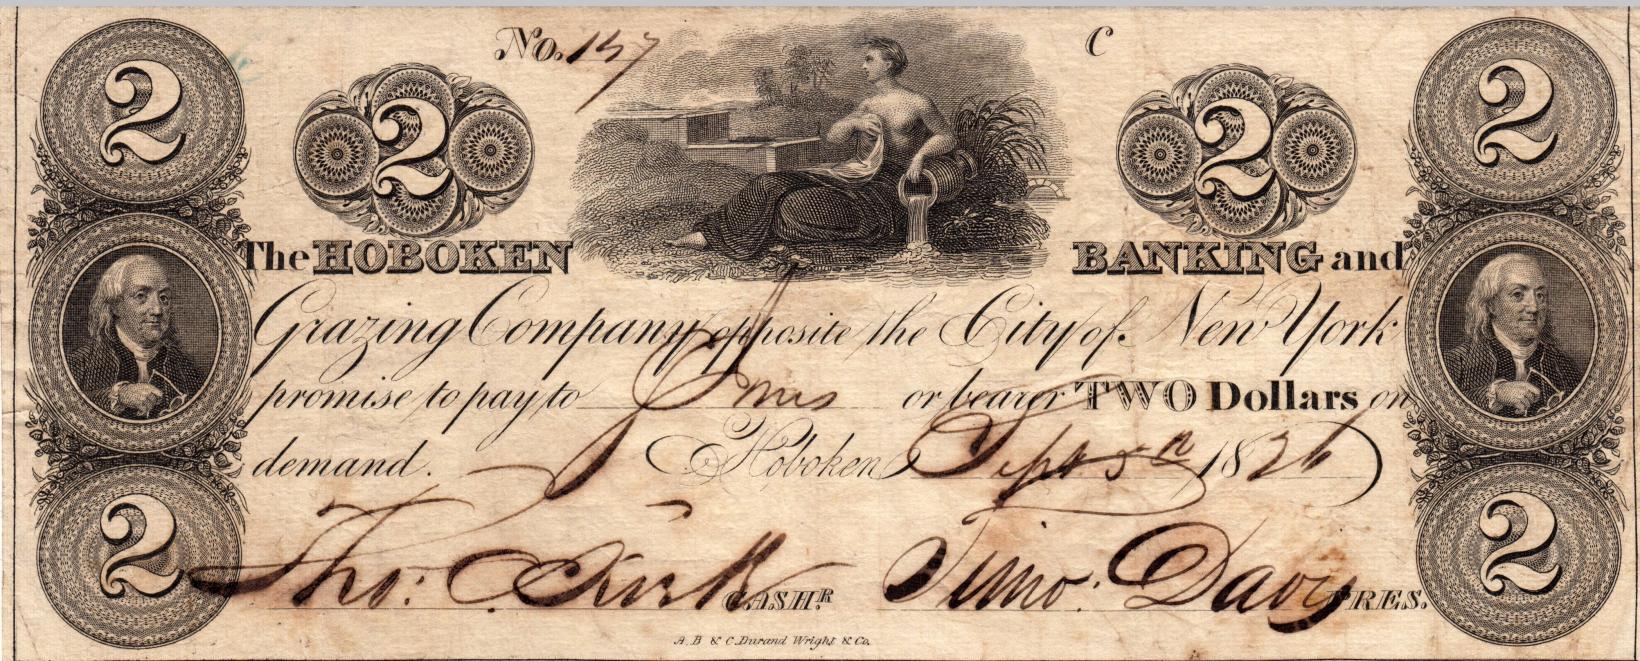 No. 157 C
2 2 2 2
The HOBOKEN BANKING and
Grazing Company opposite the City of New York
promise to pay to or bearer TWO Dollars on
demand. Hoboken Sept 5th 1826
Tho: Kirk CASHR. Timo: Davy PRES.
2 2
A. B & C. Durand Wright & Co.